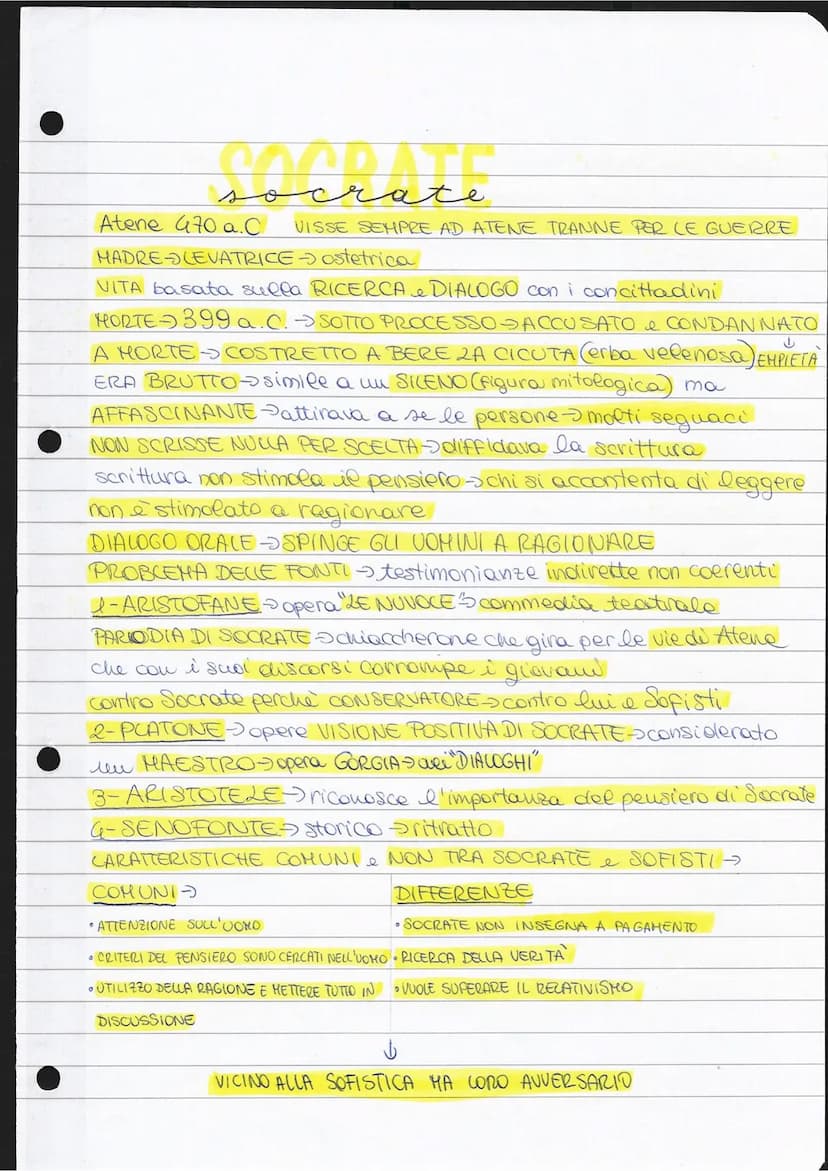 SOCRATE
socrate
Atene 470 a.C VISSE SEMPRE AD ATENE TRANNE PER LE GUERRE
MADRE → LEVATRICE → ostetrica
VITA basata sulla RICERCA e DIALOGO con i concittadini
MORTE → 399 a.C. → SOTTO PROCESSO → ACCUSATO e CONDANNATO
A MORTE → COSTRETTO A BERE LA CICUTA (erba velenosa) ↓ EMPIETÀ
ERA BRUTTO → simile a un SILENO (figura mitologica) ma
AFFASCINANTE → attirava a se le persone → molti seguaci
NON SCRISSE NULLA PER SCELTA → diffidava la scrittura
scrittura non stimola il pensiero → chi si accontenta di leggere
non è stimolato a ragionare
DIALOGO ORALE → SPINGE GLI UOMINI A RAGIONARE
PROBLEMA DELLE FONTI → testimonianze indirette non coerenti
1-ARISTOFANE → opera "LE NUVOLE" → commedia teatrale
PARODIA DI SOCRATE → chiaccherone che gira per le vie di Atene
che con i suoi discorsi corrompe i giovani
contro Socrate perchè CONSERVATORE → contro lui e Sofisti
2-PLATONE → opere VISIONE POSITIVA DI SOCRATE → considerato
un MAESTRO → opera GORGIA → nei "DIALOGHI"
3-ARISTOTELE → riconosce l'importanza del pensiero di Socrate
4-SENOFONTE → storico → ritratto
CARATTERISTICHE COMUNI e NON TRA SOCRATE e SOFISTI →
COMUNI →
• ATTENZIONE SULL'UOMO
• CRITERI DEL PENSIERO SONO CERCATI NELL'UOMO
• UTILIZZO DELLA RAGIONE E METTERE TUTTO IN
DISCUSSIONE
DIFFERENZE
• SOCRATE NON INSEGNA A PAGAMENTO
• RICERCA DELLA VERITÀ
• VUOLE SUPERARE IL RELATIVISMO
↓
VICINO ALLA SOFISTICA MA LORO AVVERSARIO